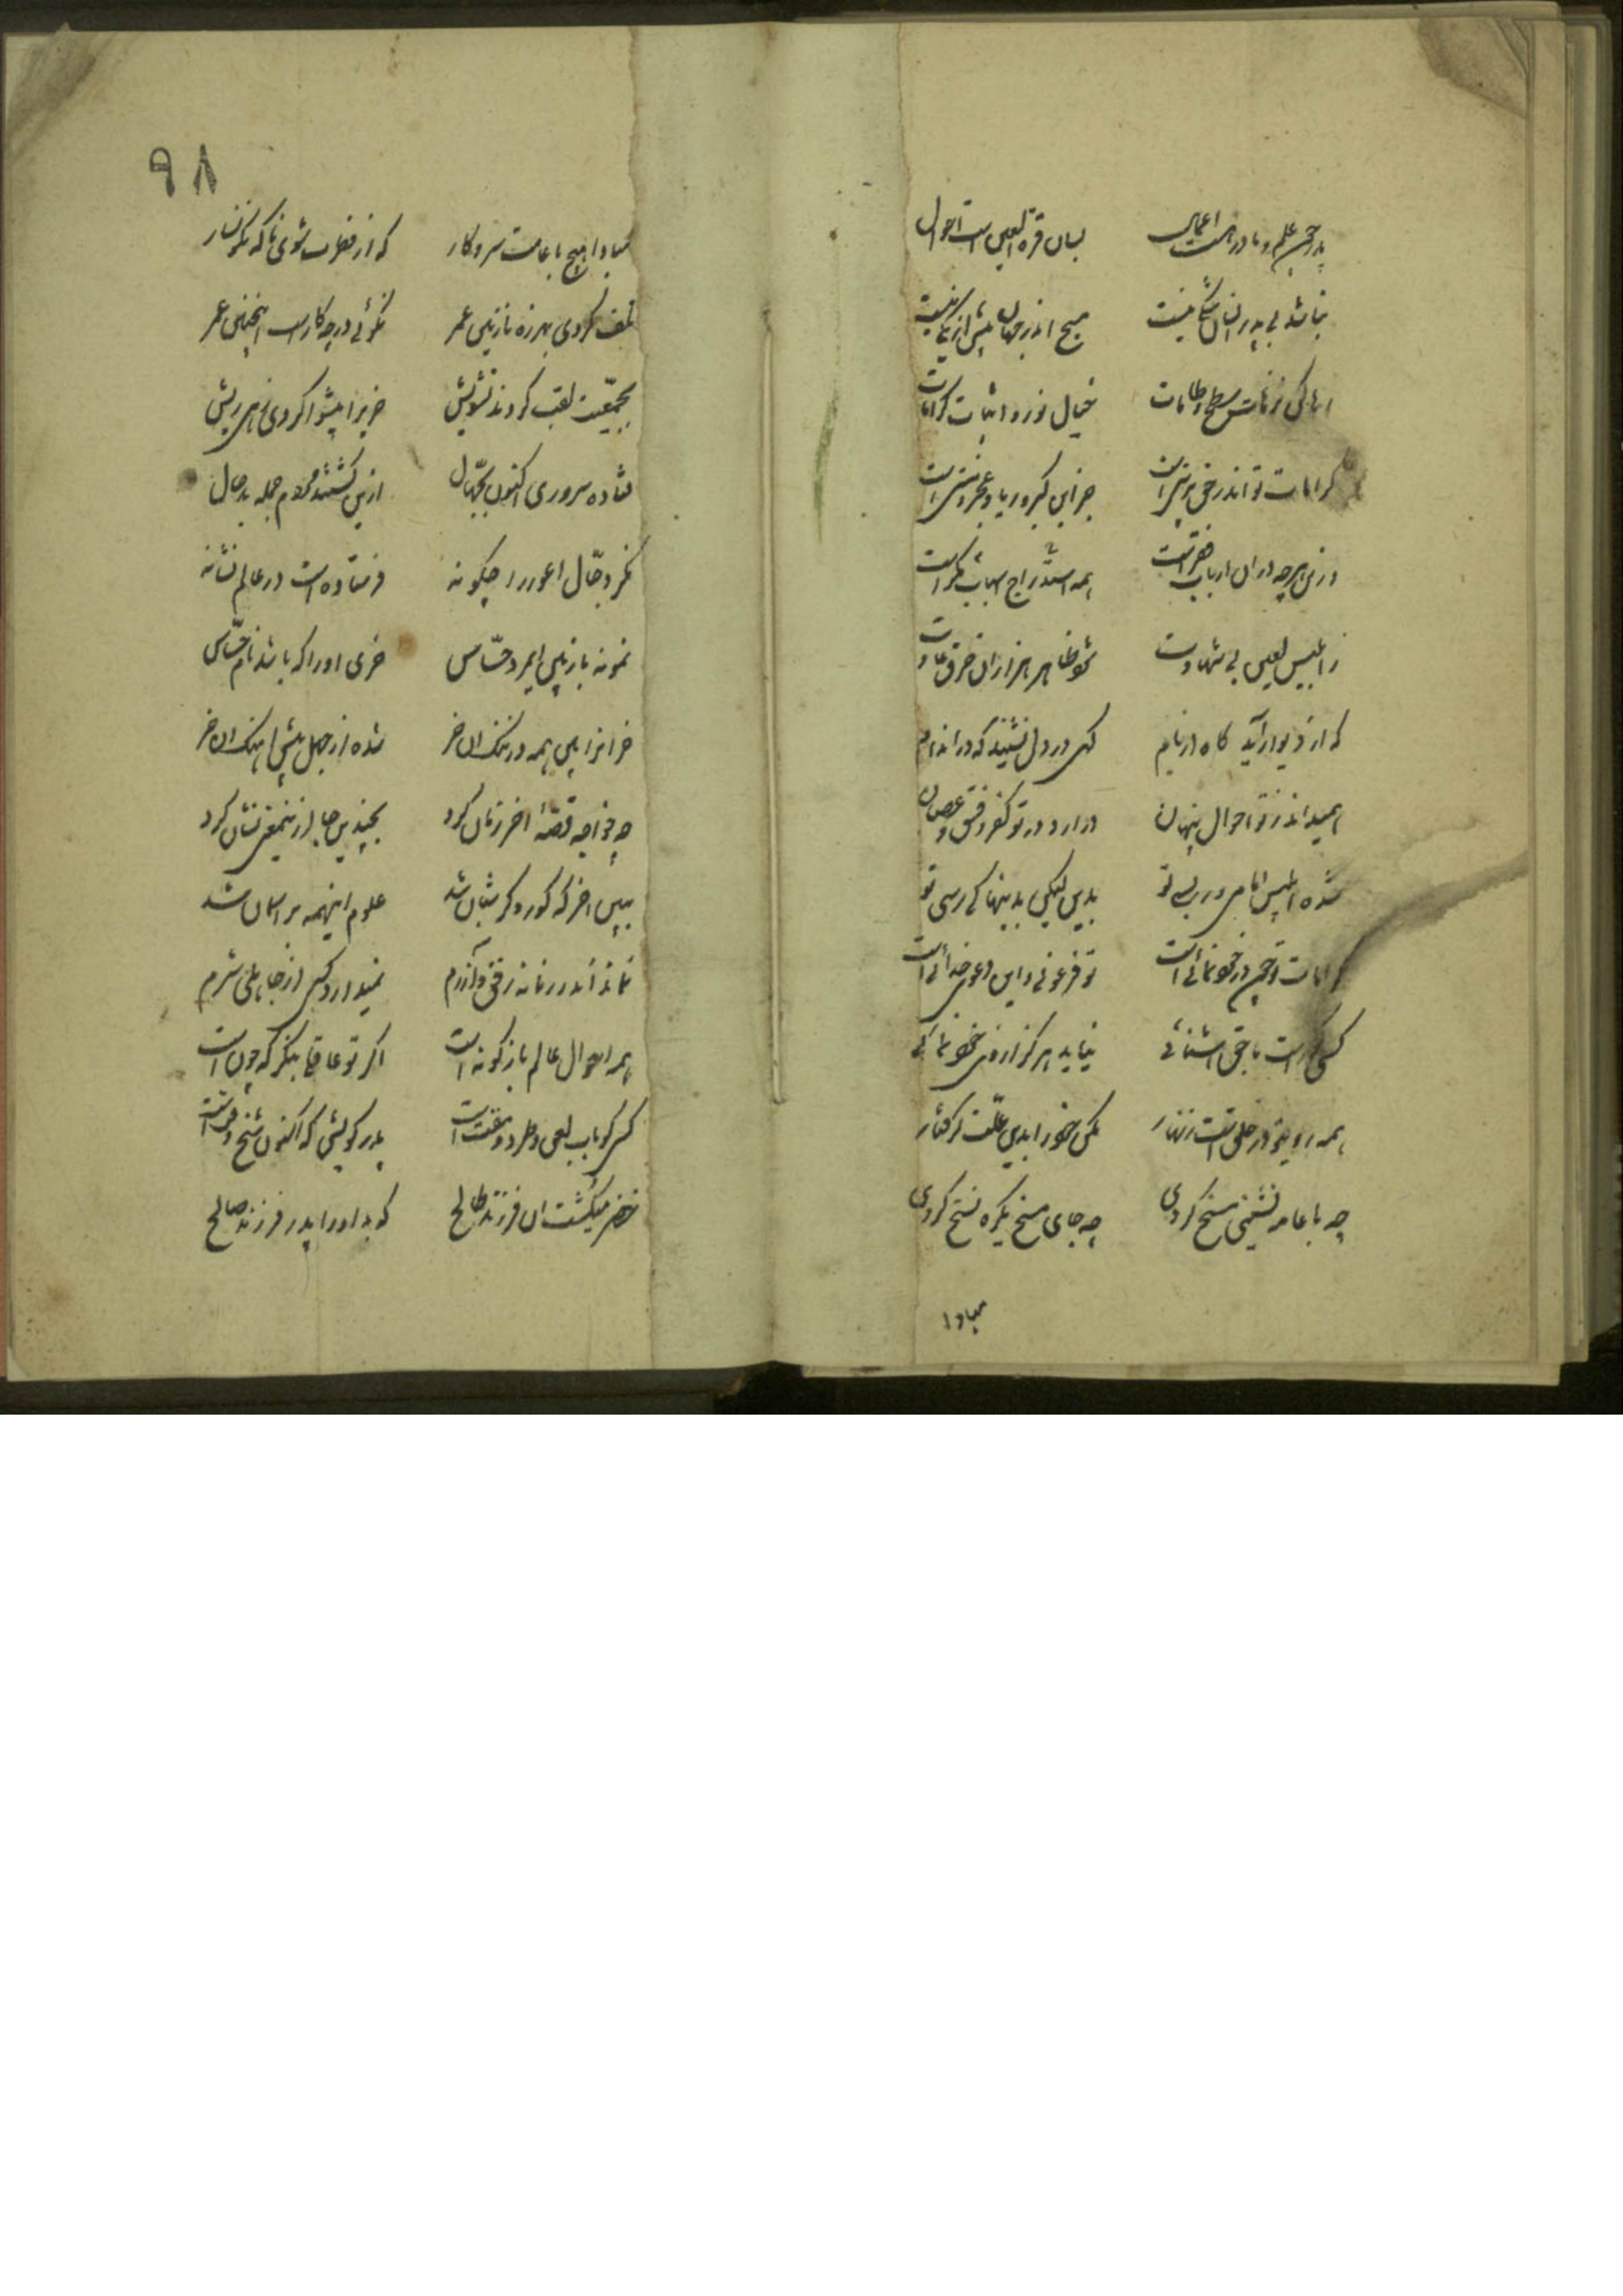 پدر چون علم و مادر هست اعمال بسان قرة العین است احوال
نباشد بی پدر انسان شکی نیست مسیح اندر جهان بیش از یکی نیست
رها کن ترهات و شطح و طامات خیال نور و اسباب کرامات
کرامات تو اندر حق پرستی است جز این کبر و ریا و عجب و هستی است
درین هر چه در ان از باب فقر است همه استدراج اسباب مکر است
ز ابلیس لعین بی شهادت شود ظاهر هزاران خرق عادت
که از دیوار آید گاه از بام گهی در دل نشیند گه در اندام
همیداند ز تو احوال پنهان در ارد در تو کفر و فسق و عصیان
شده ابلیس امامی در پس تو بدین لیکن بدینها کی رسی تو
کرامات تو چون در خودنمائی است تو فرعونی و این دعوی خدائی است
کسی کوراست با حق اشنائی نیاید هرگز از وی خودنمائی
همه روی تو در خلق است زنهار مکن خود را بدین علت گرفتار
چه با عامه نشینی مسخ کردی چه جای مسخ یکره نسخ کردی
مبادا
٩٨
مبادا هیچ با عامت سر و کار که از فطرت شوی ناگه نگونسار
تلف کردی بهرزه نازنین عمر نگوئی در چه کار است اینچنین عمر
بجمعیت لقب کردند تشویش خریرا پیشوا کردی زهی ریش
فتاده سروری اکنون بجهال ازین گشتند مردم جمله بدحال
نگر دجال اعور را چگونه فرستاده است در عالم نشانه
نمونه باز بین ای مرد حساس خری اورا که باشد نام جساس
خرانرا بین همه در تنگ ان خر شده از جهل پیش اهنگ ان خر
چو خواجه قصهٔ اخر زمان کرد بچندین جا ازینمعنی نشان کرد
ببین اخر که کور و کر شبان شد علوم اینهمه بر اسمان شد
نماند اندر زمانه رفق و آزرم نمیدارد کسی از جاهلی شرم
همه احوال عالم باژگونه است اگر تو عاقلی بنگر که چون است
کسی کو باب لعن و طرد و مقت است پدر نیکو بد اکنون شیخ وقت است
خضر میکشت ان فرزند طالح که بد او را پدر فرزند صالح